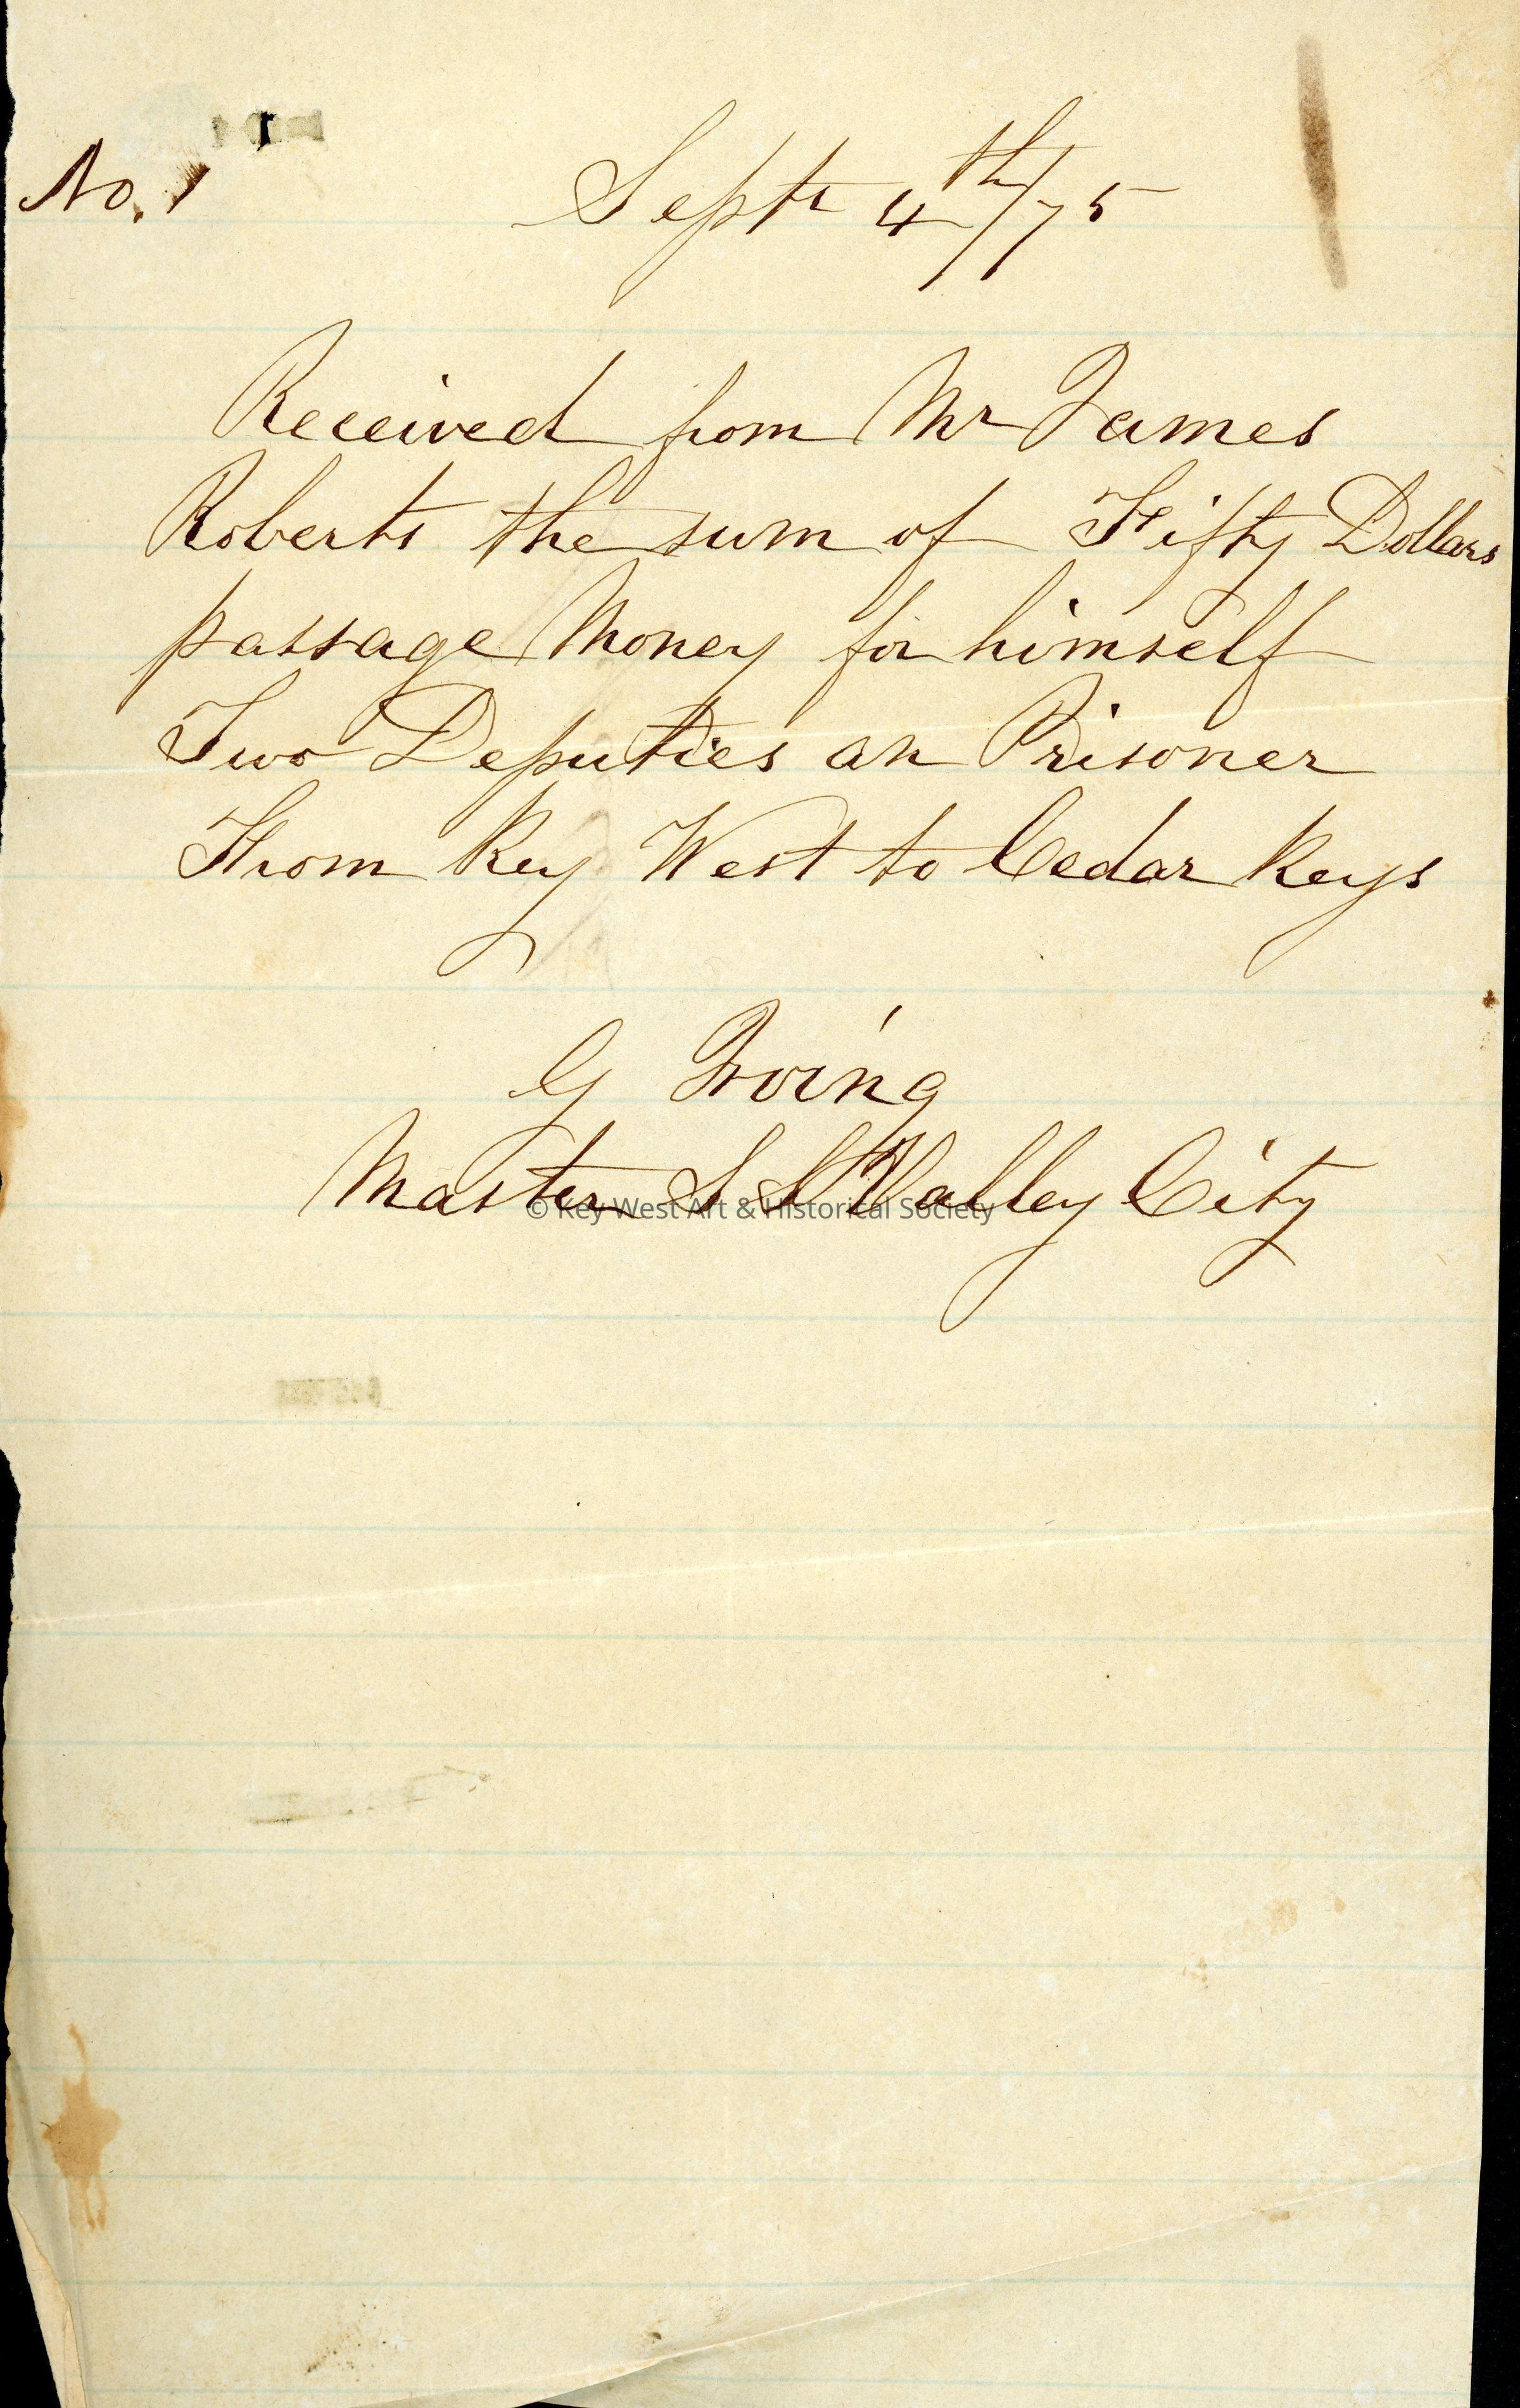 No. 1
Sept 4th/75
Received from Mr James
Roberts the sum of Fifty Dollars
passage Money for himself
Two Deputies an Prisoner
From Key West to Cedar Keys
G Irving
Master S S Valley City
© Key West Art & Historical Society